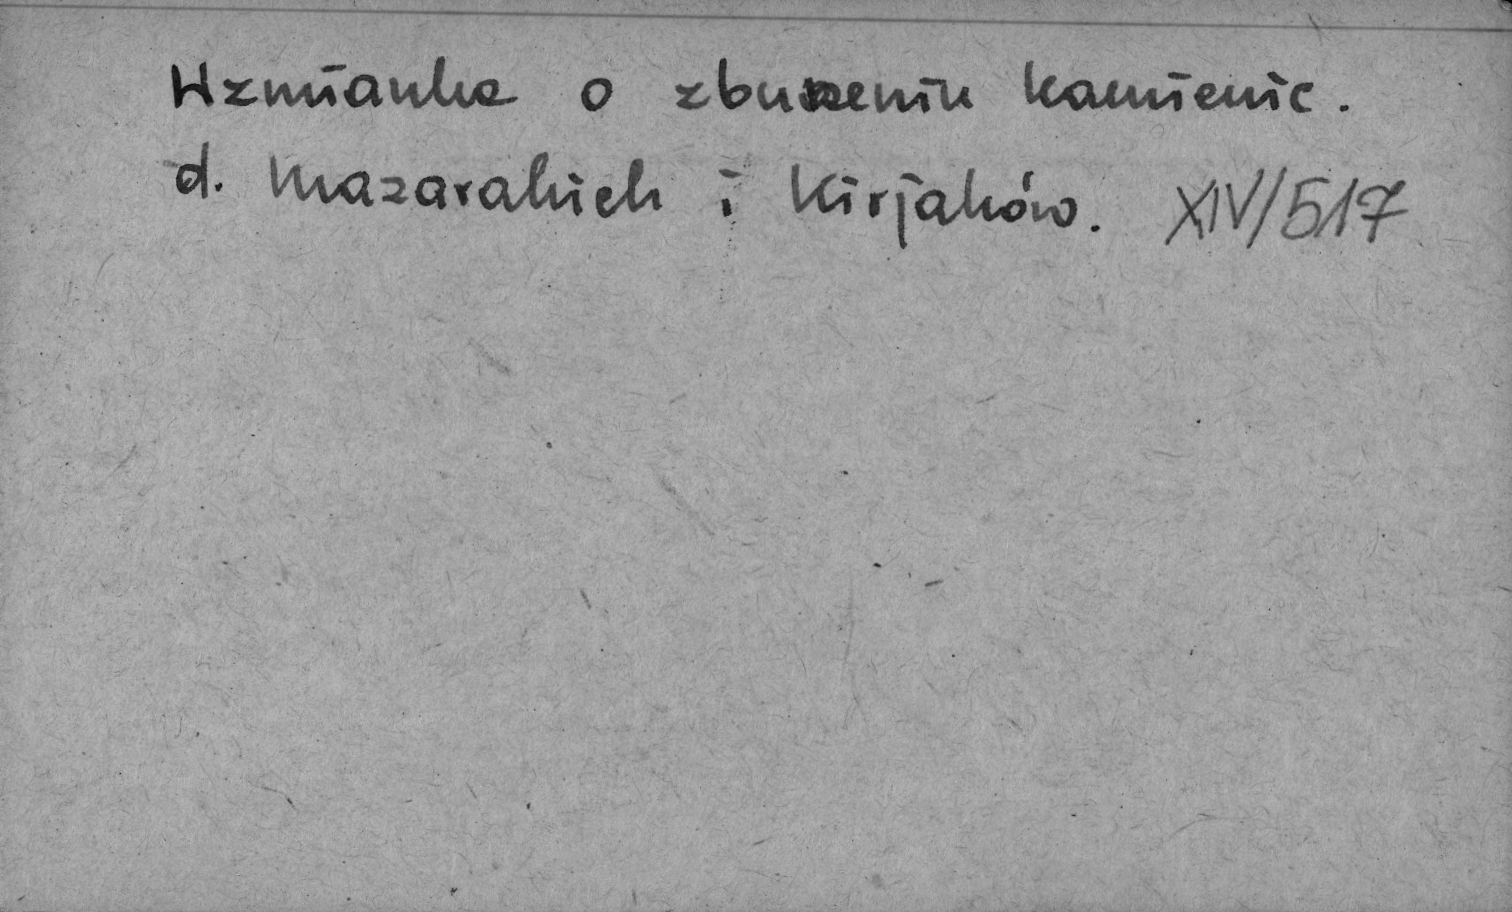 Wzmianka o zburzeniu kamienic.
d. Mazarakich i Kirjaków. XIV/517